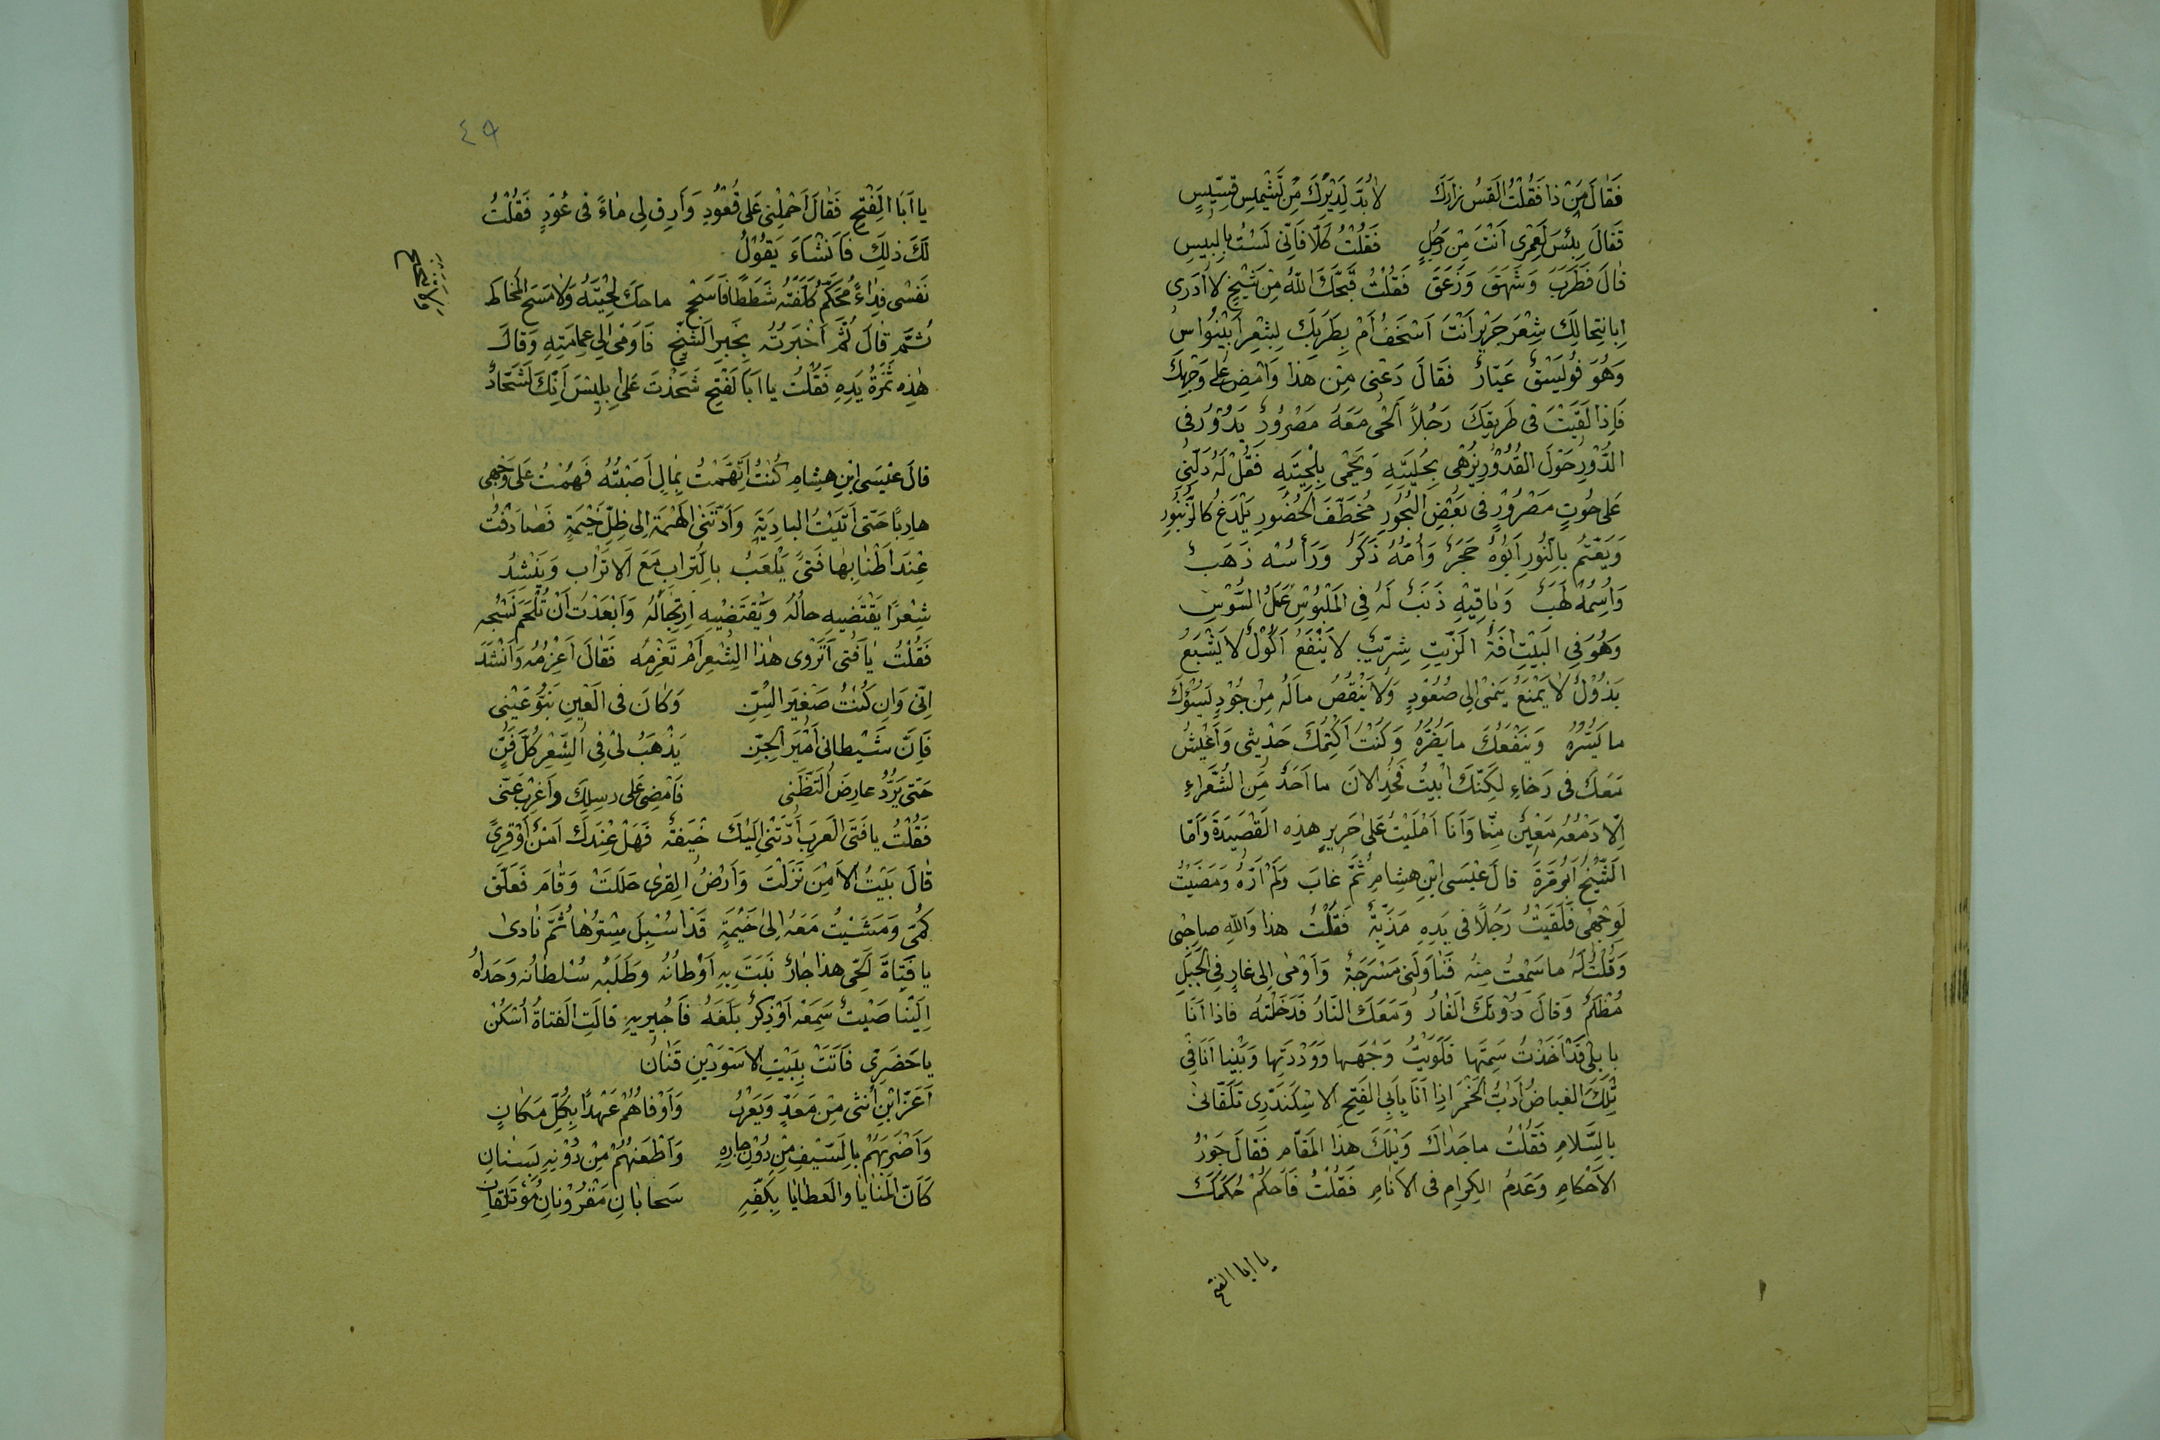 فَقالَ مَنْ ذا فَقُلْتُ القَسُّ زارَكَ لابُدَّ لِدَيْرِكَ مِنْ تَشْمِيسِ قِسِّيسِ
فَقالَ بِئْسَ لَعَمْرِى اَنْتَ مِنْ رَجُلٍ فَقُلْتُ كَلّا فَاِنّى لَسْتُ بِاِبْلِيسِ
قالَ فَطَرِبَ وَشَهَقَ وَزَعَقَ فَقُلْتُ قَبَّحَكَ اللّٰهُ مِنْ شَيْخٍ لا اَدْرى
اَبِانْتِحالِكَ شِعْرَ جَرِيرٍ اَنْتَ اَسْخَفُ اَمْ بِطَرَبِكَ لِشِعْرِ اَبِى نُواسٍ
وَهُوَ فُوَيْسِقٌ عَيّارٌ فَقالَ دَعْنى مِنْ هذا وَامْضِ عَلى وَجْهِكَ
فَاِذا لَقِيتَ فى طَرِيقِكَ رَجُلاً اَلْحٰى مَعَهُ مَصْرُورٌ يَدُوْرُ فى
الدُّوْرِ حَوْلَ القُدُوْرِ يُزْهى بِحُلْيَتِهِ وَيُحْمى بِلِحْيَتِهِ فَقُلْ لَهُ دُلَّنِى
عَلى حُوتٍ مَصْرُوْرٍ فى بَعْضِ البُحُورِ مُخَطَّفِ الخُصُورِ يَلْدَغُ كَالزُّنْبُورِ
وَيَعْتَمُّ بِالنُّورِ اَبُوْهُ حَجَرٌ وَاُمُّهُ ذَكَرٌ وَرَأْسُه ذَهَبٌ
وَاسْمُهُ لَهَبٌ وَباقِيْهِ ذَنَبٌ لَهُ فِى المَلْبُوْسِ عَمَلُ السُّوْسِ
وَهُوَ فِى البَيْتِ آفَةُ الزَّيْتِ شِرِّيْبٌ لا يَنْقَعُ اَكُوْلٌ لا يَشْبَعُ
بَذُوْلٌ لا يَمْنَعُ يَنْمى اِلى صُعُوْدٍ وَلا يَنْقُصُ مالَهُ مِنْ جُوْدٍ يَسُوْءُكَ
ما يَسُرُّهُ وَيَنْفَعُكَ ما يَضُرُّهُ وَكُنْتُ اَكْتُمُكَ حَدِيْثى وَاَعِيْشُ
مَعَكَ فى رَخاءٍ لكِنَّكَ اَبَيْتَ فَخُذِ الآنَ ما اَحَدٌ مِنَ الشُّعَراءِ
اِلّا وَمَعُهُ مُعِيْنٌ مِنّا وَاَنَا اَمْلَيْتُ عَلى جَرِيرٍ هذِهِ القَصِيْدَةَ وَاَنَا
الشَّيْخُ اَبُو مُرَّةَ قالَ عِيْسَى ابْنِ هِشامٍ ثُمَّ غابَ وَلَمْ اَرَهُ وَمَضَيْتُ
لِوَجْهى فَلَقِيْتُ رَجُلًا فى يَدِهِ مَذَبَّةٌ فَقُلْتُ هذا وَاللّٰهِ صاحِبى
وَقُلْتُ لَهُ ما سَمِعْتُ مِنْه فَناوَلَنى مَسْرَجَةً وَاَوْمى اِلى غارٍ فِى الجَبَلِ
مُظْلِمٍ وَقالَ دُوْنَكَ الغارُ وَمَعَكَ النّارُ فَدَخَلْتُه فَاِذا اَنَا
بِاِبِلى قَدْ اَخَذَتْ سَمْتَها فَلَوَيْتُ وَجْهَها وَرَدَدْتُها وَبَيْنا اَنَا فِى
تِلْكَ الغِياضُ اَدُبُّ الخَمَرَ اِذا اَنَا بِاَبِى الفَتْحِ الاِسْكَنْدَرِى تَلَقّانى
بِالسَّلامِ فَقُلْتُ ما حَداكَ وَيْلَكَ هذَا المَقام فَقالَ جَوْرُ
الاَحْكامِ وَعَدَمُ الكِرامِ فى الاَنامِ فَقُلْتُ فَاحْكُمْ حُكْمَكَ
يا ابا الفتح
٤٩
يا اَبَا الفَتْحِ فَقالَ اَحْمِلْنى عَلى قُعُوْدٍ وَاَرِق لِى ماءً فى عُوْدٍ فَقُلْتُ
لَكَ ذلِكَ فَاَنْشَاءَ يَقُوْلُ
نَفْسى فِداءُ مُحَكِّمٍ كَلَّفْتُه شَطَطًا فَاَسْجَحْ ما حَكَّ لِحْيَتَهُ وَلا مَسَحَ المُخاطَ
ثُمَّ قالَ ثُمَّ اَخْبَرْتُه بِخَبَرِ الشَّيْخِ فَاَوْمى اِلى عِمامَتِهِ وَقالَ
هٰذِه ثَمَرَةُ يَدِهِ فَقُلْتُ يا اَبَا لفَتْحِ شَحَذْتَ عَلى اِبْلِيْسَ اِنَّكَ لَشَحّاذٌ
قالَ عِيْسَى ابْنِ هِشامٍ كُنْتُ اتُّهِمْتُ بِمالٍ اَصَبْتُهُ فَهِمْتُ عَلى وَجْهِى
هارِبًا حَتّى اَتَيْتُ البادِيَةَ وَاَدَّتْنِى الهَيْمَة اِلى ظِلِّ خَيْمَةٍ فَصادَفْتُ
عِنْدَ اَطْنابِها فَتىً يَلْعَبُ بِالتُّرابِ مَعَ الاَتْرابِ وَيُنْشِدُ
شِعْرًا يَقْتَضِيهِ حالُهُ وَيَقْتَضِيهِ ارْتِجالُهُ وَاَبْعَدْتُ اَنْ تُلْحَمَ نَسْجُه
فَقُلْتُ يا فَتى اَتَرْوى هٰذا الشِّعْرَ اَمْ تَعْزِمُه فَقالَ اَعْزِمُه وَاَنْشَدَ
اِنّى وَاِن كُنْتُ صَغِيرَ السِّنِّ وَكانَ فى العَيْنِ نُبُوٌّ عَنِّى
فَاِنَّ شَيْطانى اَمْيرُ الجِنِّ يَذْهَبُ لِىْ فِى الشِّعْرِ كُلَّ فَنٍّ
حَتّى يَرُدَّ عارِضَ التَّظَنِّى فَامْضِ عَلى رِسلِكَ وَاغْرُبْ عَنّى
فَقُلْتُ يا فَتَى العَرَبِ اَدَّتْنى اِلَيْكَ خِيْفَةٌ فَهَلْ عِنْدَكَ اَمْنٌ اَوْ قِرىً
قالَ بَيْتَ الاَمْنِ نَزَلْتَ وَاَرْضَ القِرى حَلَلْتَ وَقامَ فَعَلَّقَ
كُمّى وَمَشَيْتُ مَعَهُ اِلى خَيْمَةٍ قَدْ اُسْبِلَ سِتْرُها ثُمَّ نادى
يا فَتاةَ الحَىِّ هذا جارٌ نَبَتْ بِهِ اَوْطانُهُ وَطَلَبَهُ سُلْطانُه وَحَداهُ
اِلَيْنا صَيْتٌ سَمِعَهُ اَوْ ذِكْرٌ بَلَغَهُ فَاَجِيرِيهِ قالَتِ الفَتاةُ اُسْكُنْ
يا حَضَرِىُّ فَاَنْتَ بِبَيْتِ الاَسْوَدَيْنِ قَنان
اَعَزِّ ابْنِ اُنْثى مِنْ مَعَدٍّ وَيَعْرُبٍ وَاَوْفاهُمْ عَهْدًا بِكُلِّ مَكانٍ
وَاَضْرَبُهُمْ بِالسَّيْفِ مِنْ دُوْنِ جارِهِ وَاَطْعَنُهُمْ مِنْ دُوْنِهِ بِسِنانٍ
كَاَنَّ المَنايا والعَطايا بِكَفِّهِ سَحابانِ مَقْرُوْنانِ مُؤْتَلِفانِ